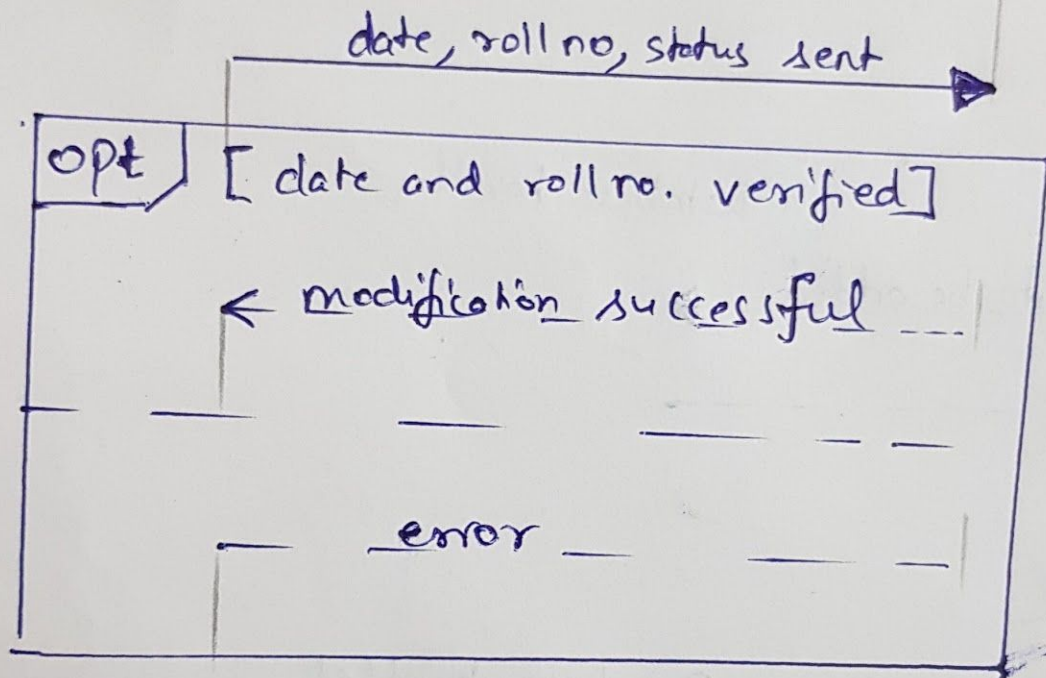 date, roll no, status sent
opt [ date and roll no. verified ]
modification successful
error